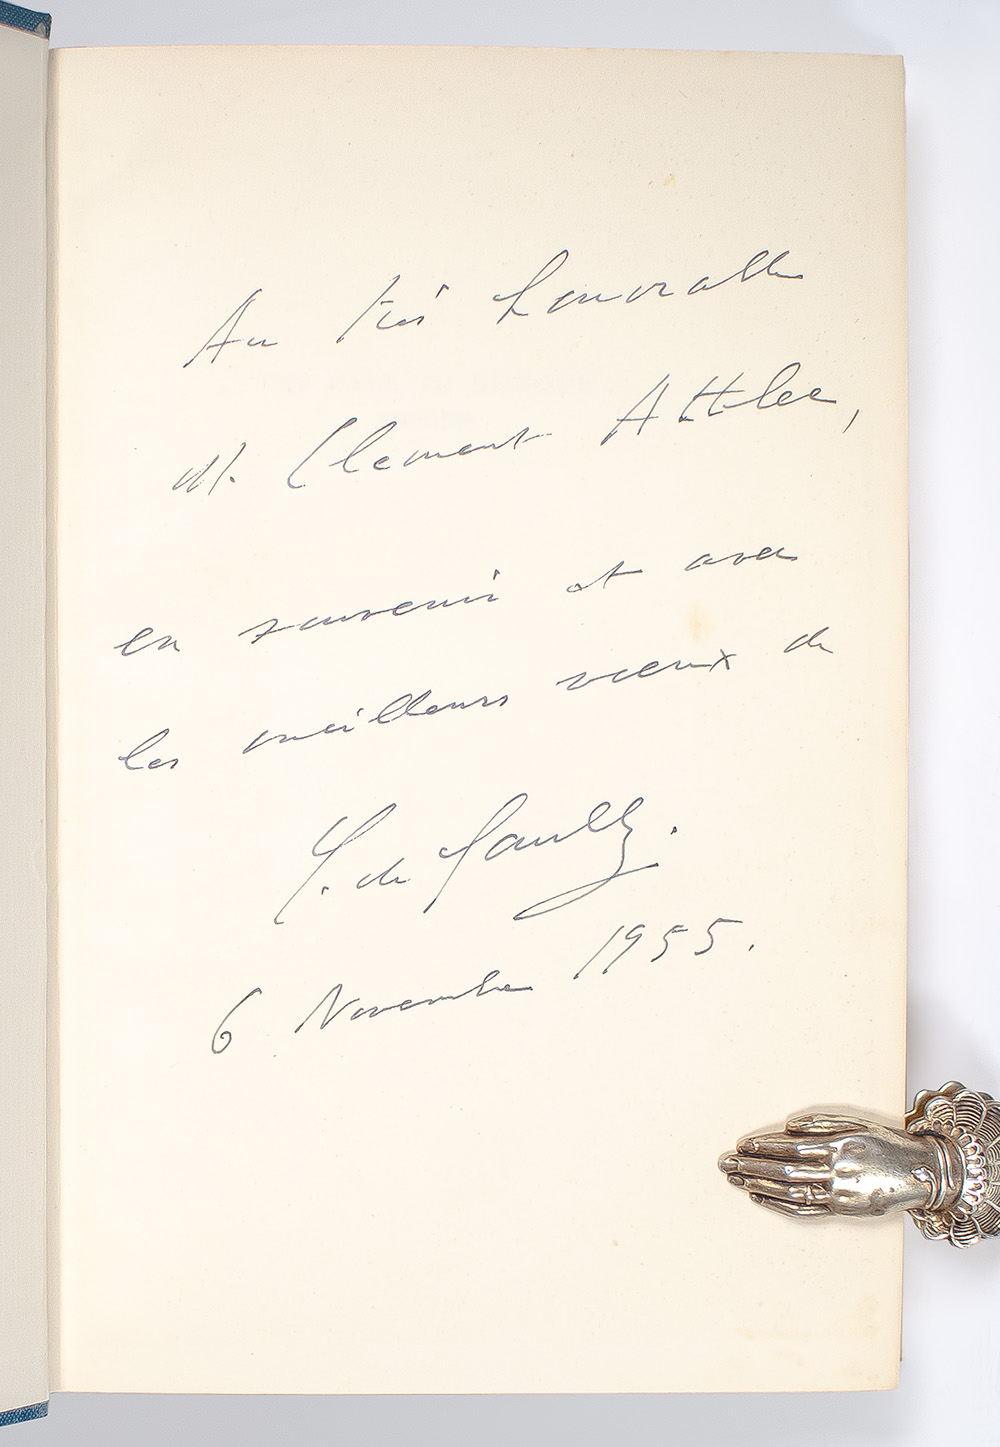 Au très honorable
M. Clement Attlee,
en souvenir et avec
les meilleurs vœux de
C. de Gaulle.
6 Novembre 1955.